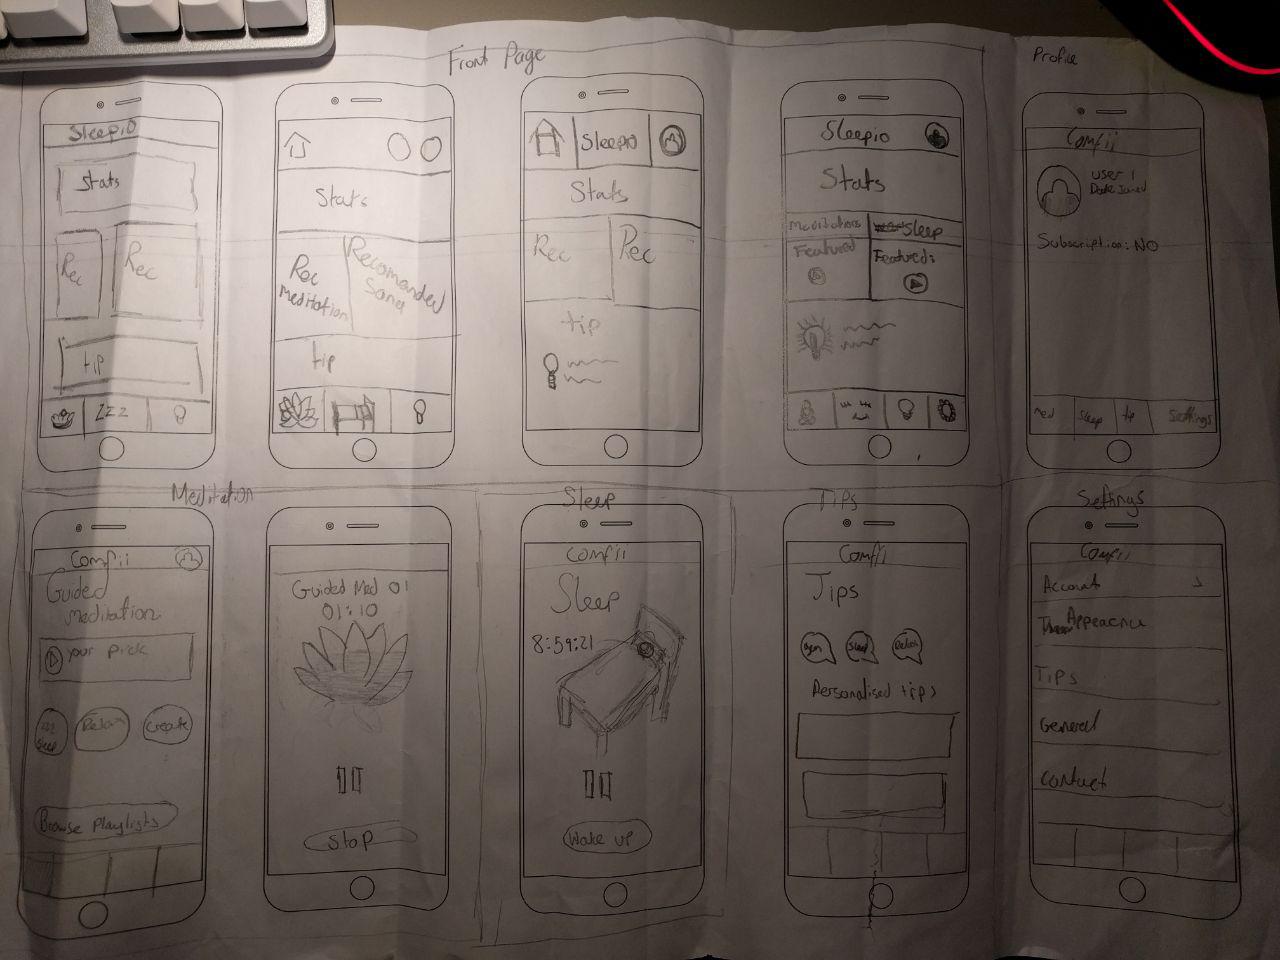 Front Page
Profile
SleepiO
Stats
Rec
Rec
tip
zzz
Stats
Rec
Meditation
Recomanded
Song
tip
Sleepio
Stats
Rec
Rec
tip
Sleepio
Stats
Meditations
Sleep
Featured
Featured:
Comfii
user 1
Date Joined
Subscription: NO
med
sleep
tip
Settings
Meditation
Sleep
Tips
Settings
Comfii
Guided
Meditation
your pick
zzz
sleep
Relax
Create
Browse Playlists
Guided Med 01
01:10
Stop
Comfii
Sleep
8:59:21
Wake up
Comfii
Tips
Sleep
Relax
Personalised tips
Comfii
Account
Tips
General
Contact